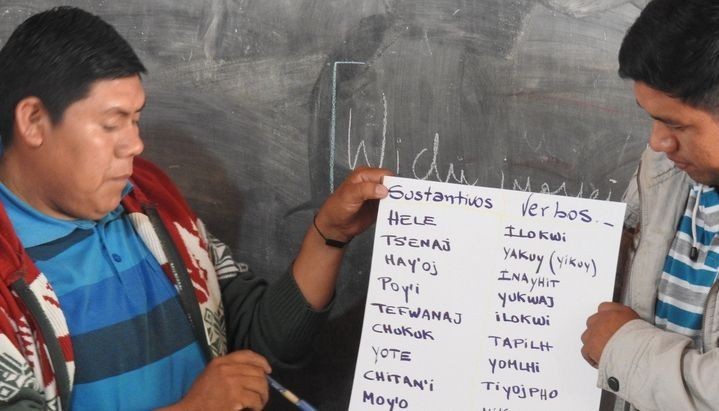 Sustantivos Verbos.-
HELE ILOKWI
TS'ENAJ YAKUY (YIKUY)
HAY'OJ INAYHIT
POY'I YUKWAJ
TEFWANAJ ILOKWI
CHOKUK TAPILH
YOTE YOMLHI
CHITAN'I TIYOJPHO
MOY'O